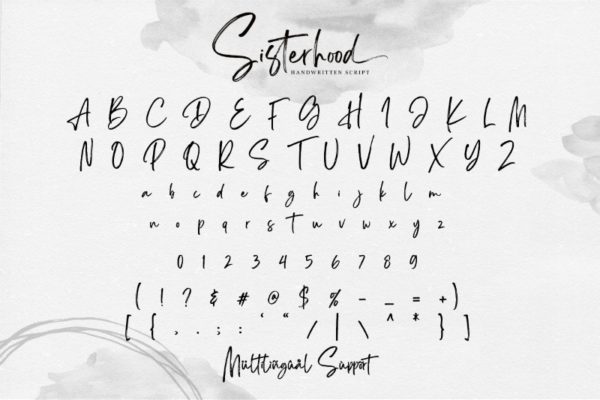 Sisterhood
HANDWRITTEN SCRIPT
A B C D E F G H I J K L M
N O P Q R S T U V W X Y Z
a b c d e f g h i j k l m
n o p q r s t u v w x y z
0 1 2 3 4 5 6 7 8 9
( ! ? & # @ $ % - _ = + )
[ { , . ; : ‘ “ / | \ ^ * } ]
Mültilingüàl Süppört